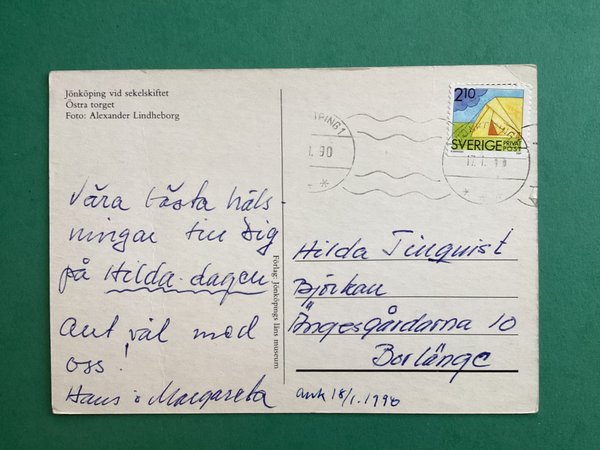 Jönköping vid sekelskiftet
Östra torget
Foto: Alexander Lindheborg
Våra bästa häls-
ningar till Dig
på Hilda-dagen
Allt väl med
oss!
Hans o Margareta
Förlag: Jönköpings läns museum
PING 1
1. 90
2.10
SVERIGE PRIVAT
POST
17.1.90
Hilda Tinquist
Björkan
Ängesgårdarna 10
Borlänge
ank 18/1. 1990